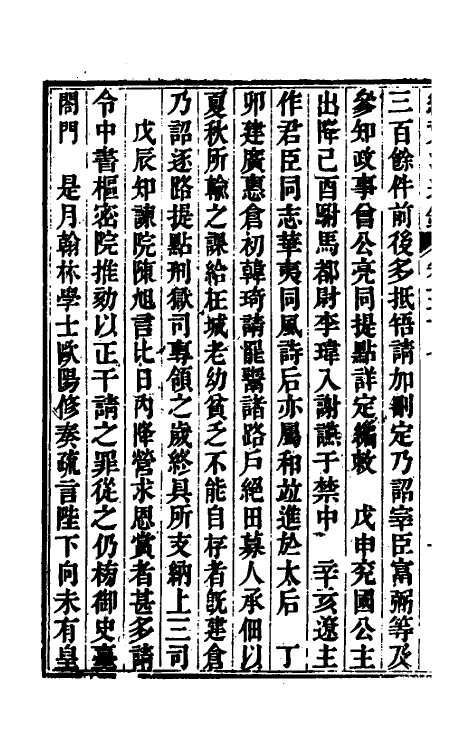 三百餘件前後多抵牾請加刪定乃詔宰臣富弼等及
參知政事曾公亮同提點詳定編敕　戊申兗國公主
出降己酉駙馬都尉李瑋入謝讌于禁中　辛亥遼主
作君臣同志華夷同風詩后亦屬和竝進於太后　丁
卯建廣惠倉初韓琦請罷鬻諸路戶絕田募人承佃以
夏秋所輸之課給在城老幼貧乏不能自存者既建倉
乃詔逐路提點刑獄司專領之歲終具所支納上三司
戊辰知諫院陳旭言比日內降營求恩賞者甚多請
令中書樞密院推劾以正干請之罪從之仍榜御史臺
閤門　是月翰林學士歐陽修奏疏言陛下向未有皇